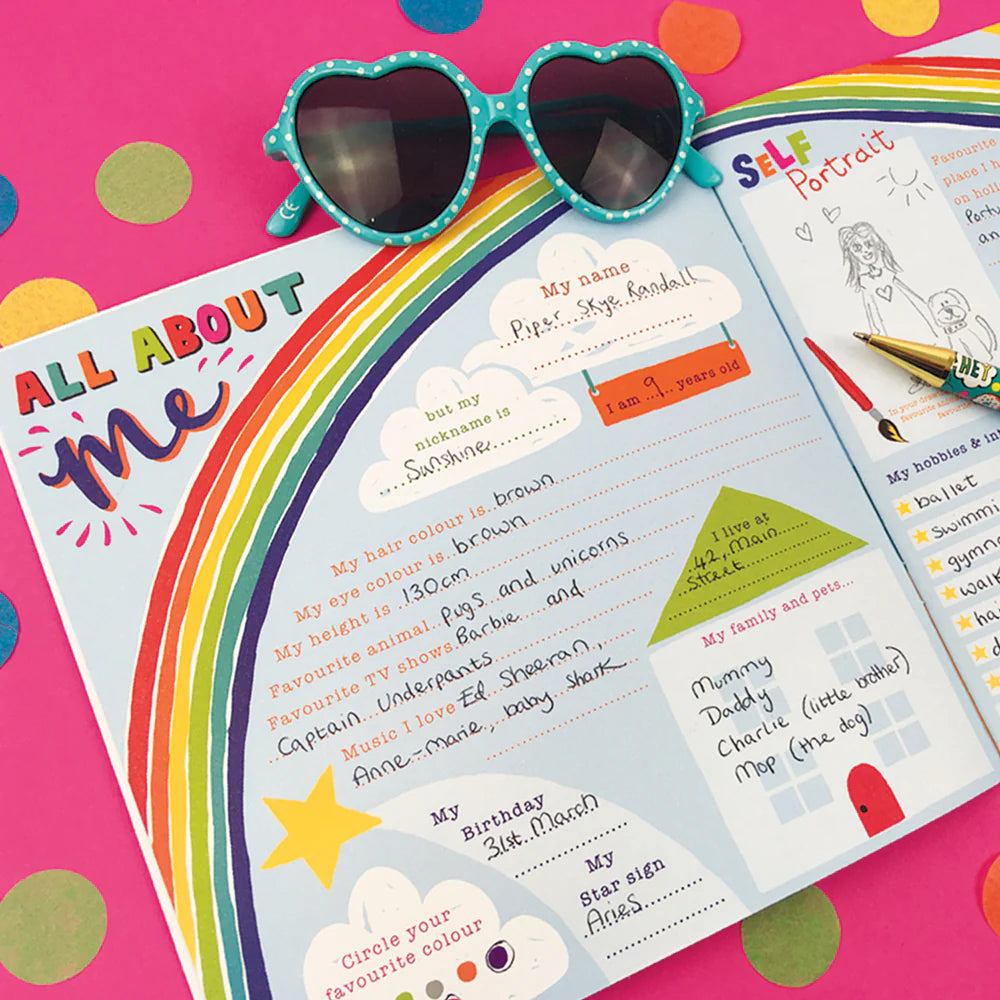 ALL ABOUT
me
My name
Piper Skye Randall
I am 9 years old
but my
nickname is
Sunshine
My hair colour is brown
My eye colour is brown
My height is 130cm
Favourite animal Pugs and unicorns
Favourite TV shows Barbie and
Captain Underpants
Music I love Ed Sheeran,
Anne-marie, baby shark
I live at
42, Main
Street
My family and pets...
Mummy
Daddy
Charlie (little brother)
Mop (the dog)
My
Birthday
31st March
My
Star sign
Aries
Circle your
favourite colour
SELF
Portrait
Favourite
place I h
on holi
Portu
an
HEY
In your
favourite
My hobbies & in
ballet
Swimmi
gymna
walk
ha
d